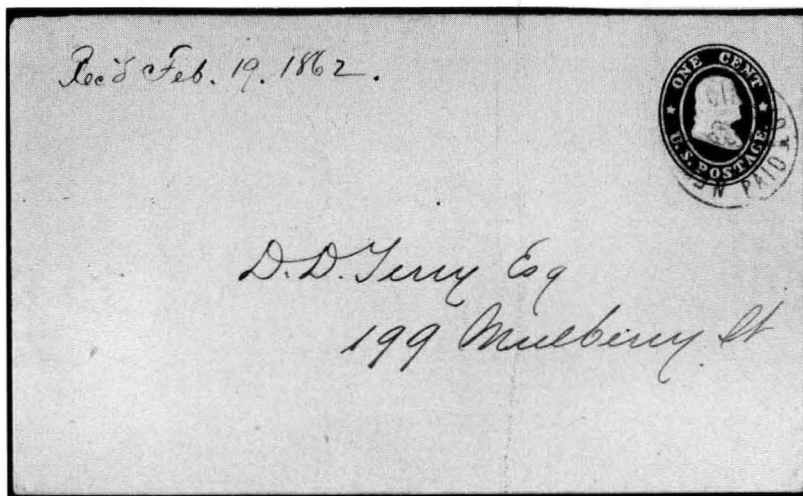 Rec'd Feb. 19. 1862.
ONE CENT
U.S. POSTAGE.
PAID
D. D. Terry Esq
199 Mulberry St